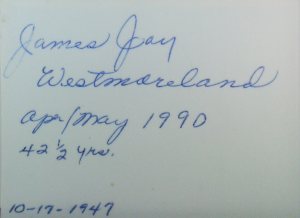 James Jay
Westmoreland
Apr/May 1990
42 ½ yrs.
10-19-1947